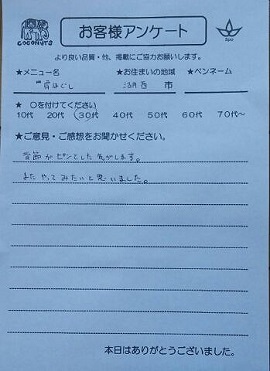 COCONUTS
お客様アンケート
Spa
より良い品質・他、掲載にご協力お願いします。
★メニュー名 ★お住まいの地域 ★ペンネーム
骨ほぐし 湖西 市
★ ○を付けてください
10代 20代 30代 40代 50代 60代 70代~
★ご意見・ご感想をお聞かせください。
背筋がピンとした気がします。
またやってみたいと思いました。
本日はありがとうございました。